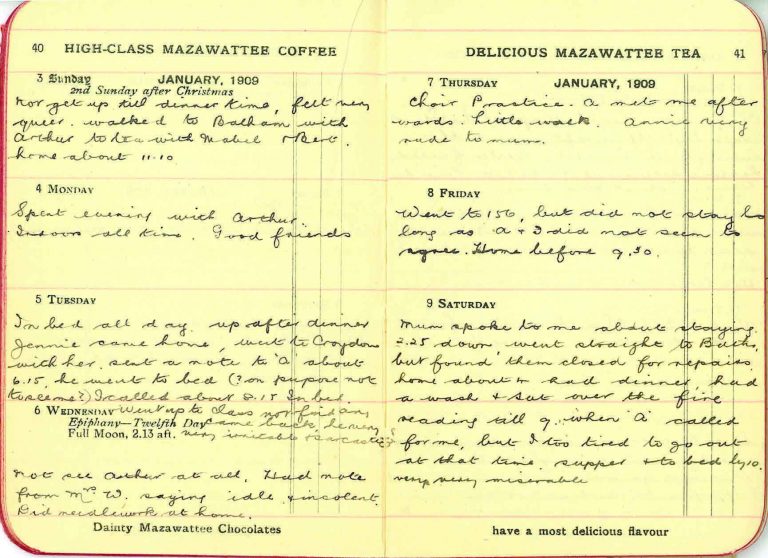 40 HIGH-CLASS MAZAWATTEE COFFEE
3 Sunday JANUARY, 1909
2nd Sunday after Christmas
Not get up till dinner time, felt very
queer. walked to Balham with
Arthur to tea with Mabel & Bert.
home about 11.10
4 MONDAY
Spent evening with Arthur.
Indoors all time. Good friends
5 TUESDAY
In bed all day. up after dinner
Jennie came home, went to Croydon
with her. sent a note to "A" about
6.15, he went to bed (? on purpose not
to see me?) I called about 8.15 In bed.
6 WEDNESDAY Went up to class not find any
Epiphany—Twelfth Day came back, he very
Full Moon, 2.13 aft. very irritable & sarcastic
Not see Arthur at all. Had note
from Mrs W. saying idle & insolent.
Did needlework at home.
Dainty Mazawattee Chocolates
DELICIOUS MAZAWATTEE TEA 41
7 THURSDAY JANUARY, 1909
Choir Practice. A met me after
wards. Little walk. Annie very
rude to mum.
8 FRIDAY
Went to 156, but did not stay
long as A & I did not seem to
agree. Home before 9.30.
9 SATURDAY
Mum spoke to me about staying.
2.25 down, went straight to Baths,
but found them closed for repairs.
home about 4 had dinner, had
a wash & sat over the fire
reading till 9. when "A" called
for me, but I too tired to go out
at that time. supper & to bed by 10.
very very miserable
have a most delicious flavour